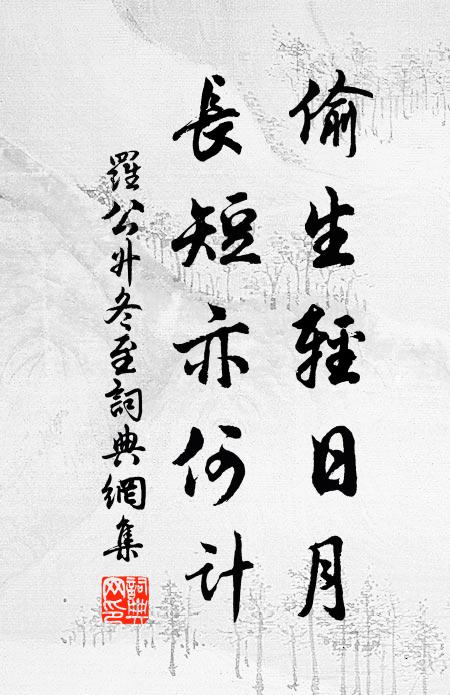 偷生輕日月
長短亦何計
羅公升冬至詞典網集
詞典網印